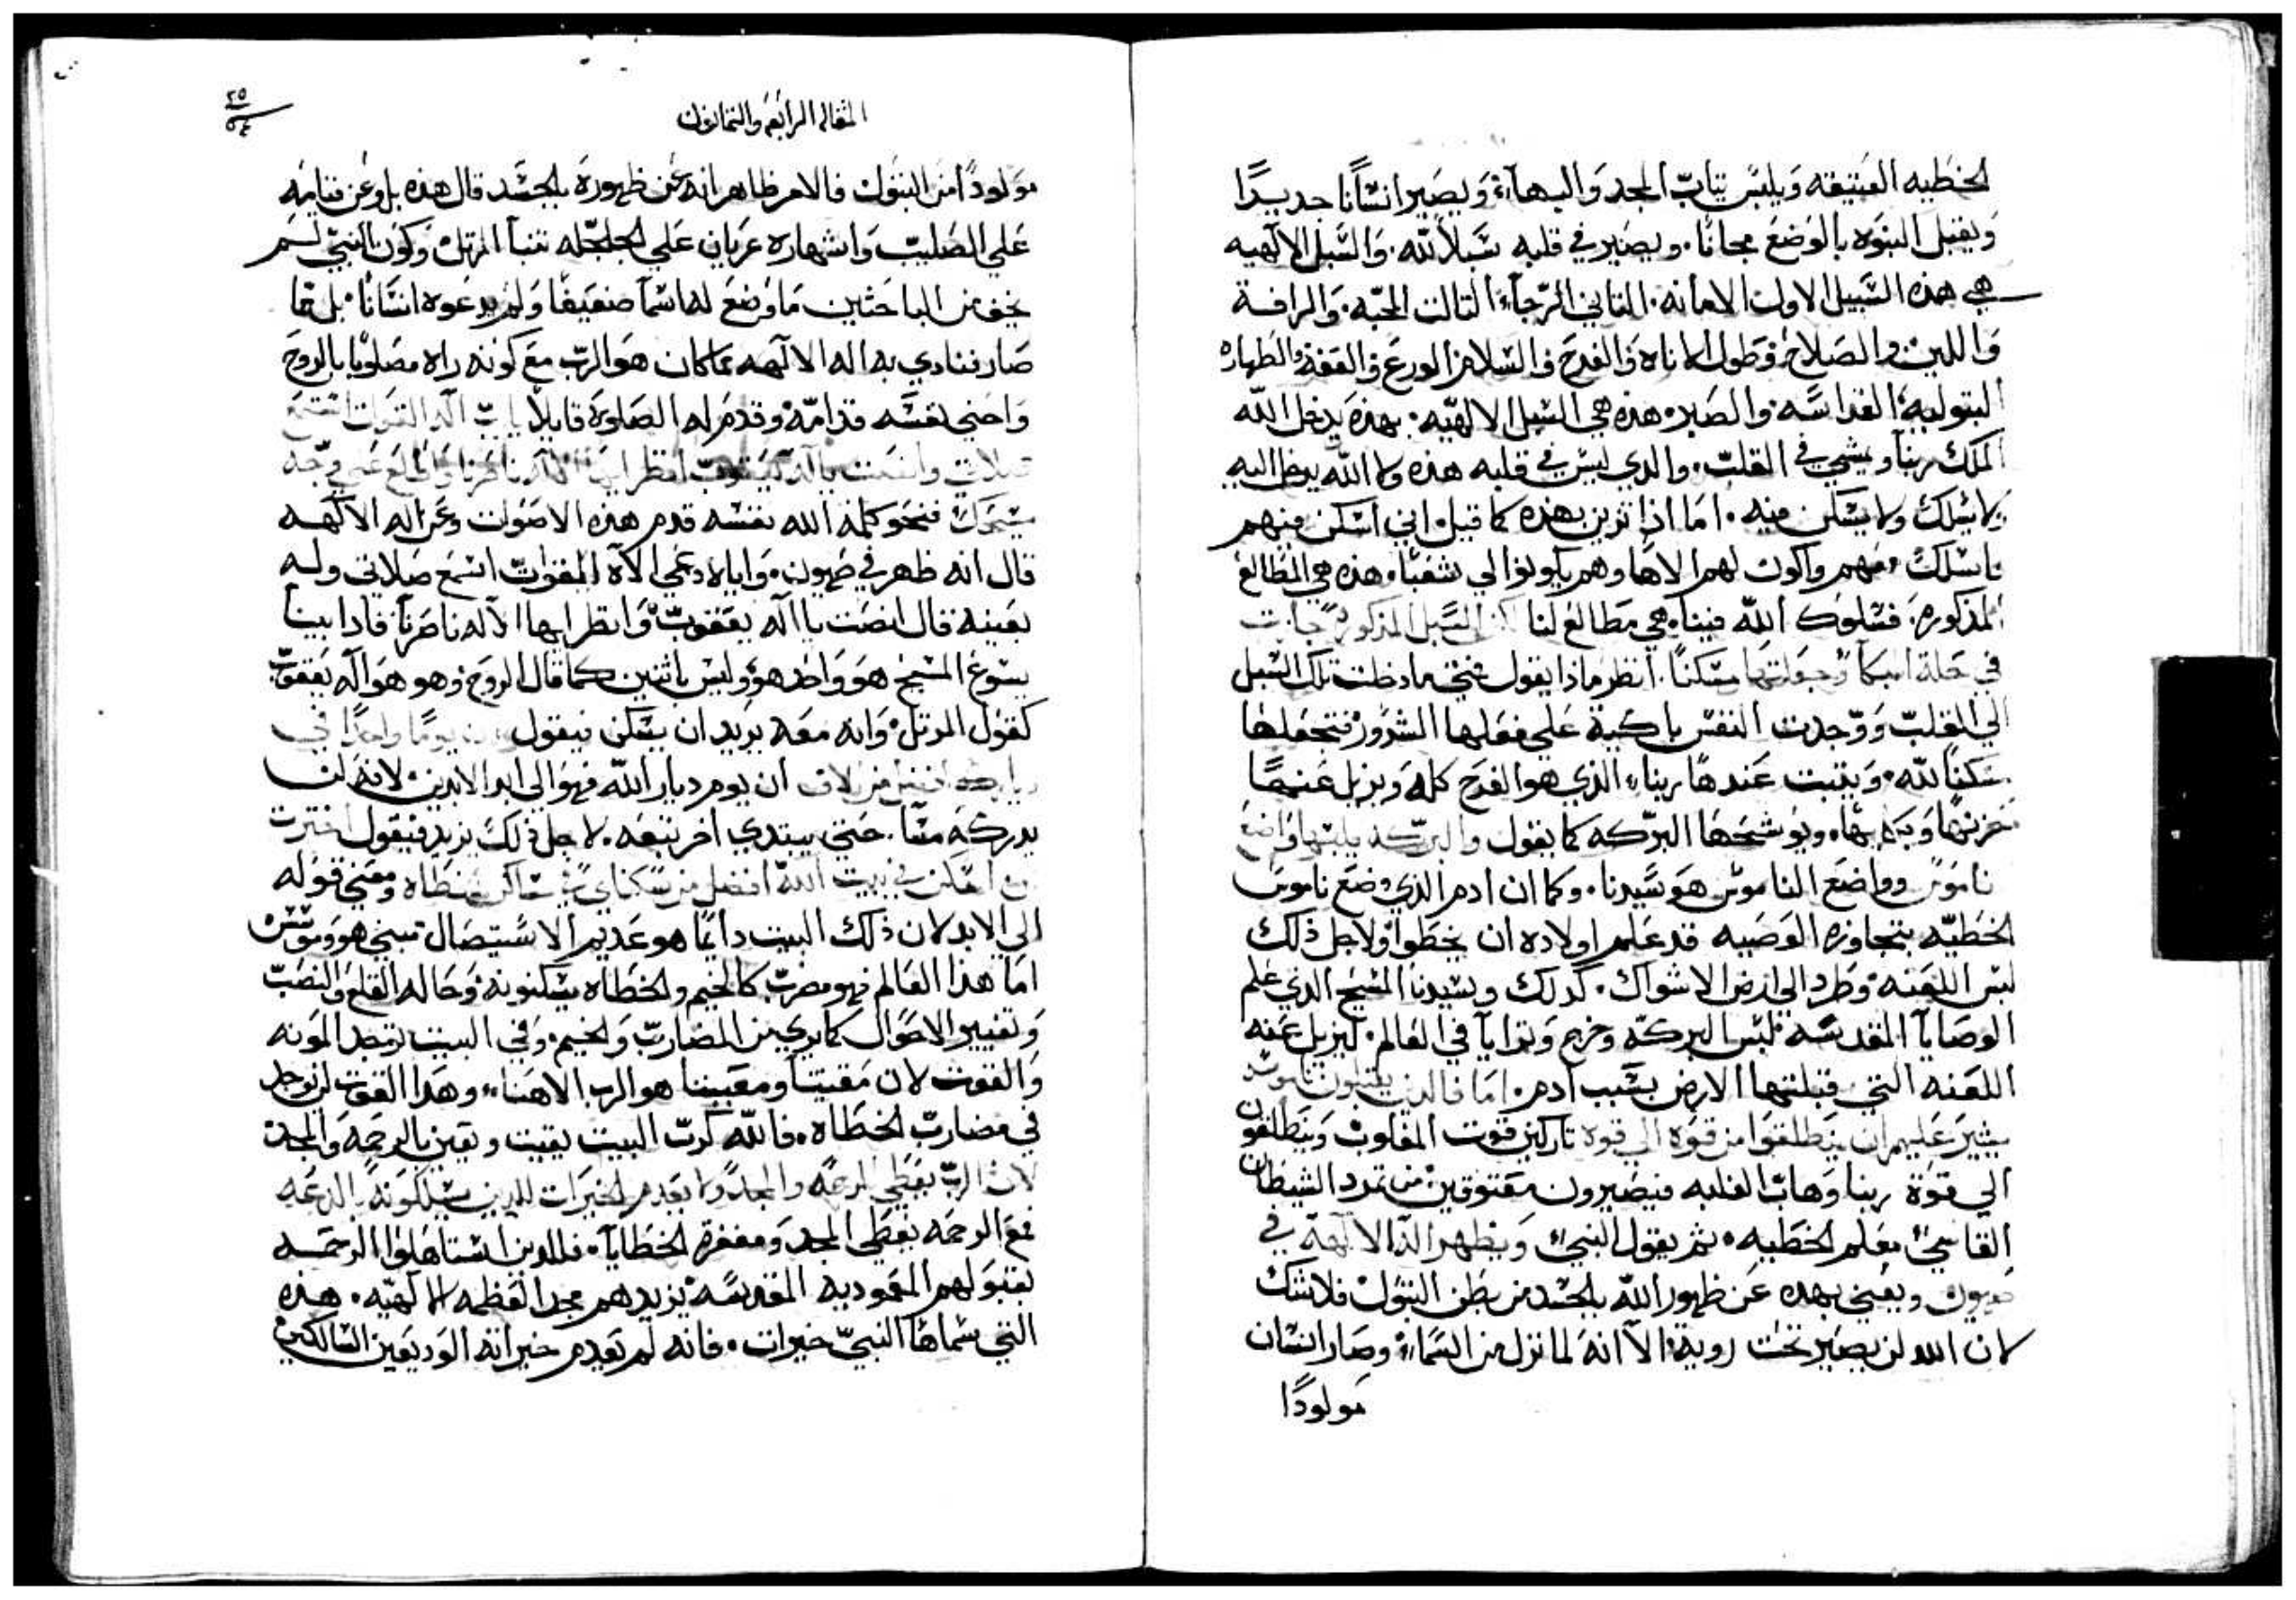 الخطيه العتيقه ويلبس تياب المجد والبهآء، ويصير انسانا جديدًا
ويقبل البنوه بالوضع مجانًا. ويصير في قلبه سبلاً لله. والسبل الالهيه
هي هذه السبيل الاول الامانه. التاني الرجآء، التالت المحبه. والرافة
واللين والصلاح وطول الاناه والفرح والسلامه الورع والعفة والطهاره
البتوليه القداسه والصبر. هذه هي السبل الالهيه. بهذه يدخل الله
الملك ربنا ويمشي في القلب. والدي ليس في قلبه هذه ولا الله يدخل اليه
ولا يسلك ولا يسكن فيه. اما اذا تزين بهذه كما قيل اني اسكن فيهم
باسلك فيهم واكون لهم الاهًا وهم يكونوا لي شعبًا. هذه هي المطالع
المذكوره. فسلوك الله فينا هي مطالع لنا السبل المذكوره
في حلة البكا وجعلتها مسكنًا. انظر ماذا يقول متي ما دخلت تلك السبل
الي القلب ووجدت النفس باكية علي فعلها الشرور فتجعلها
مسكنًا لله. ويتبت عندها ربنا، الذي هو الفرح كله ويزيل عنها
حزنها وبكاها، ويوشحها البركه كما يقول والبركه يلبسها واضع
ناموس وواضع الناموس هو سيدنا. وكما ان ادم الذي وضع ناموس
الخطيه بتجاوزه الوصيه قد علم اولاده ان يخطوا ولاجل ذلك
لبس اللعنه وطرد الي ارض الاشواك. كذلك وسيدنا المسيح الذي علم
الوصايا المقدسه لبس البركه وخرج وترايا في العالم. ليزيل عنه
اللعنه التي قبلتها الارض بسبب ادم. اما فالدين يقبلون ناموسه
يشير عليهم ان ينطلقوا من قوه الي قوه تاركين قوت المغلوب وينطلقون
الي قوة ربنا وهاب الغلبه فيصيرون معتوقين من تمرد الشيطان
القاسي معلم الخطيه. تم يقول النبي ويظهر الة الالهة في
صهيون ويعني بهده عن ظهور الله بالجسد من بطن البتول فلا شك
لان الله لن يصير تحت روية الا انه لما نزل من السماء، وصار انسان
مولودًا
المقاله الرابعه والتمانون
٢٥
٥٤
مولودًا من البتول فالامر ظاهر انه عن ظهوره بالجسد قال هذه بل وعن قيامه
علي الصليب واشهاره عريان علي الجلجله تنبا المرتل وكون النبي لم
يخف من الباحثين ما وضع له اسمًا ضعيفًا ولم يدعوه انسانًا. بل
صار فنادي به اله الالهه كما كان هو الرب مع كونه راه مصلوبًا بالروح
واحني نفسه قدامه وقدم له الصلوة قايلاً يارب اله القوات استمع
صلاتي وانصت يا اله يعقوب انظر ايها الاله ناصرنا واطلع علي وجه
مسيحك فنحو كلمة الله نفسه قدم هذه الاصوات وعن اله الالهه
قال انه ظهر في صهيون. واياه دعي الاه القوات استمع صلاتي وله
بعينه قال انصت يا اله يعقوب وانظر ايها الاله ناصرنا فادا بينا
يسوع المسيح هو واحد هو وليس باتنين كما قال الروح وهو هو اله يعقوب
كقول المرتل. وانه معه يريد ان يسكن فيقول ان يومًا واحدًا في
ديارك افضل من الاف ان يوم ديار الله فهو الي ابد الابدين لانه لن
يدركه مسآ. حتي يبتدي اخر يتبعه. لاجل ذلك يزيد فيقول اخترت
ان اسكن في بيت الله افضل من سكناي في مساكن الخطاه ومعني قوله
الي الابد لان ذلك البيت دايمًا هو عديم الاستيصال
اما هذا العالم فهو مضرب كالخيم والخطاه يسكنونه وحاله القلع والنصب
وتغيير الاحوال كما يري من المضارب والخيم. وفي البيت توجد المونه
والقوت لان مقيتنا ومعيننا هو الرب الاهنا. وهذا القوت لن يوجد
في مضارب الخطاه. فالله كرب البيت يقيت ويعين بالرحمه والمجد
لان الرب يعطي الرحمه والمجد ولا يعدم الخيرات للدين يسلكونه بالدعه
فمع الرحمه يعطي المجد ومغفرة الخطايا. فللدين استاهلوا الرحمه
بقبولهم المعموديه المقدسه يزيدهم مجد العظمه الالهيه. هذه
التي سماها النبي خيرات. فانه لم يعدم خيراته الوديعين السالكين